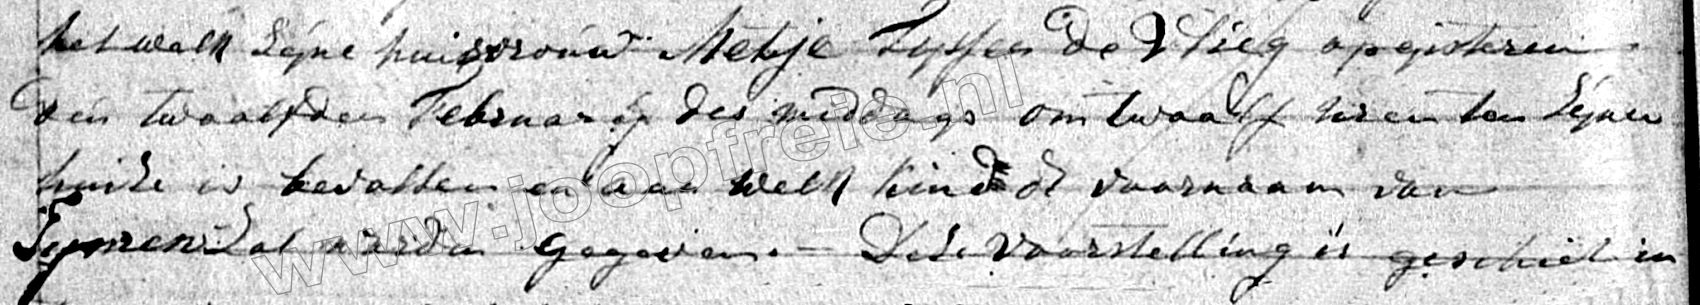 het welk Zijne huisvrouw Metje Tysses de Vlieg op gisteren
den twaalfden Februarij des middags om twaalf uren ten Zijnen
huize is bevallen en aan welk kind de voornaam van
Symen Zal worden gegeven. — Deze voorstelling is geschiet in
www.joopfreie.nl